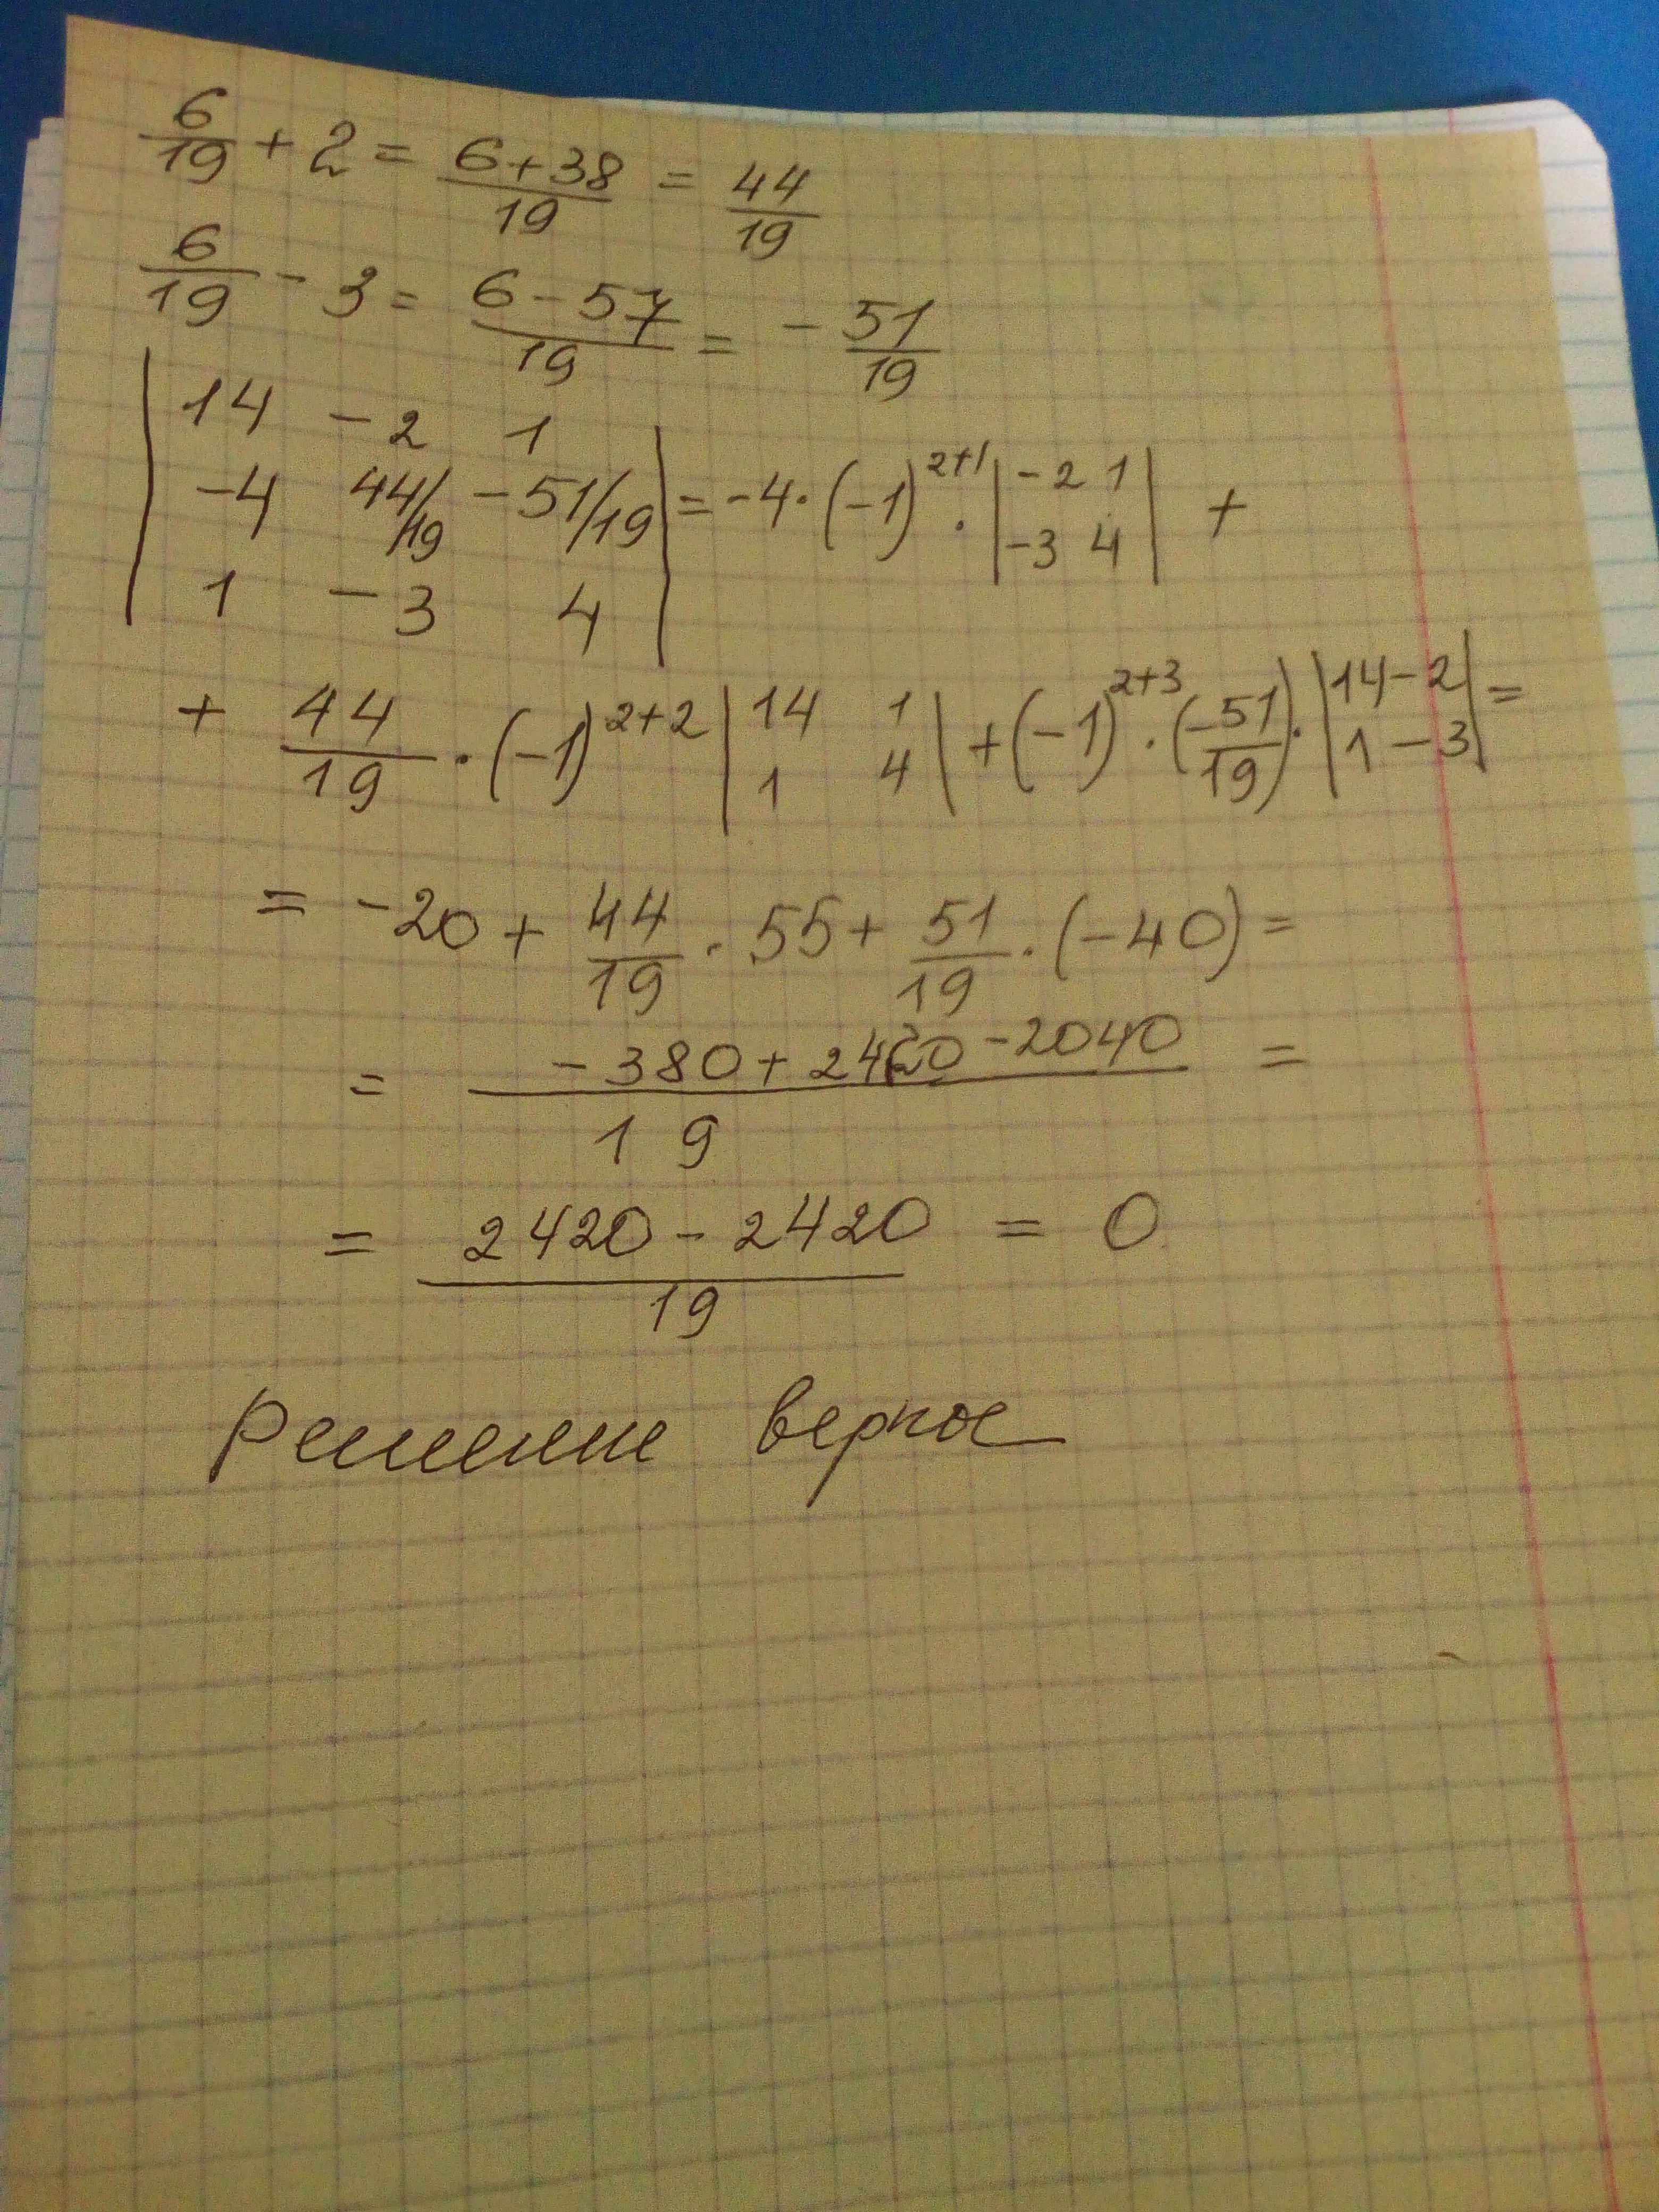 6/19 + 2 = (6+38)/19 = 44/19
6/19 - 3 = (6-57)/19 = - 51/19
| 14 -2 1 |
| -4 44/19 -51/19 | = -4·(-1)^(2+1) · | -2 1 ; -3 4 | +
| 1 -3 4 |
+ 44/19 · (-1)^(2+2) | 14 1 ; 1 4 | + (-1)^(2+3) · (-51/19) · | 14 -2 ; 1 -3 | =
= -20 + 44/19 · 55 + 51/19 · (-40) =
= (-380 + 2420 - 2040)/19 =
= (2420 - 2420)/19 = 0
Решение верное